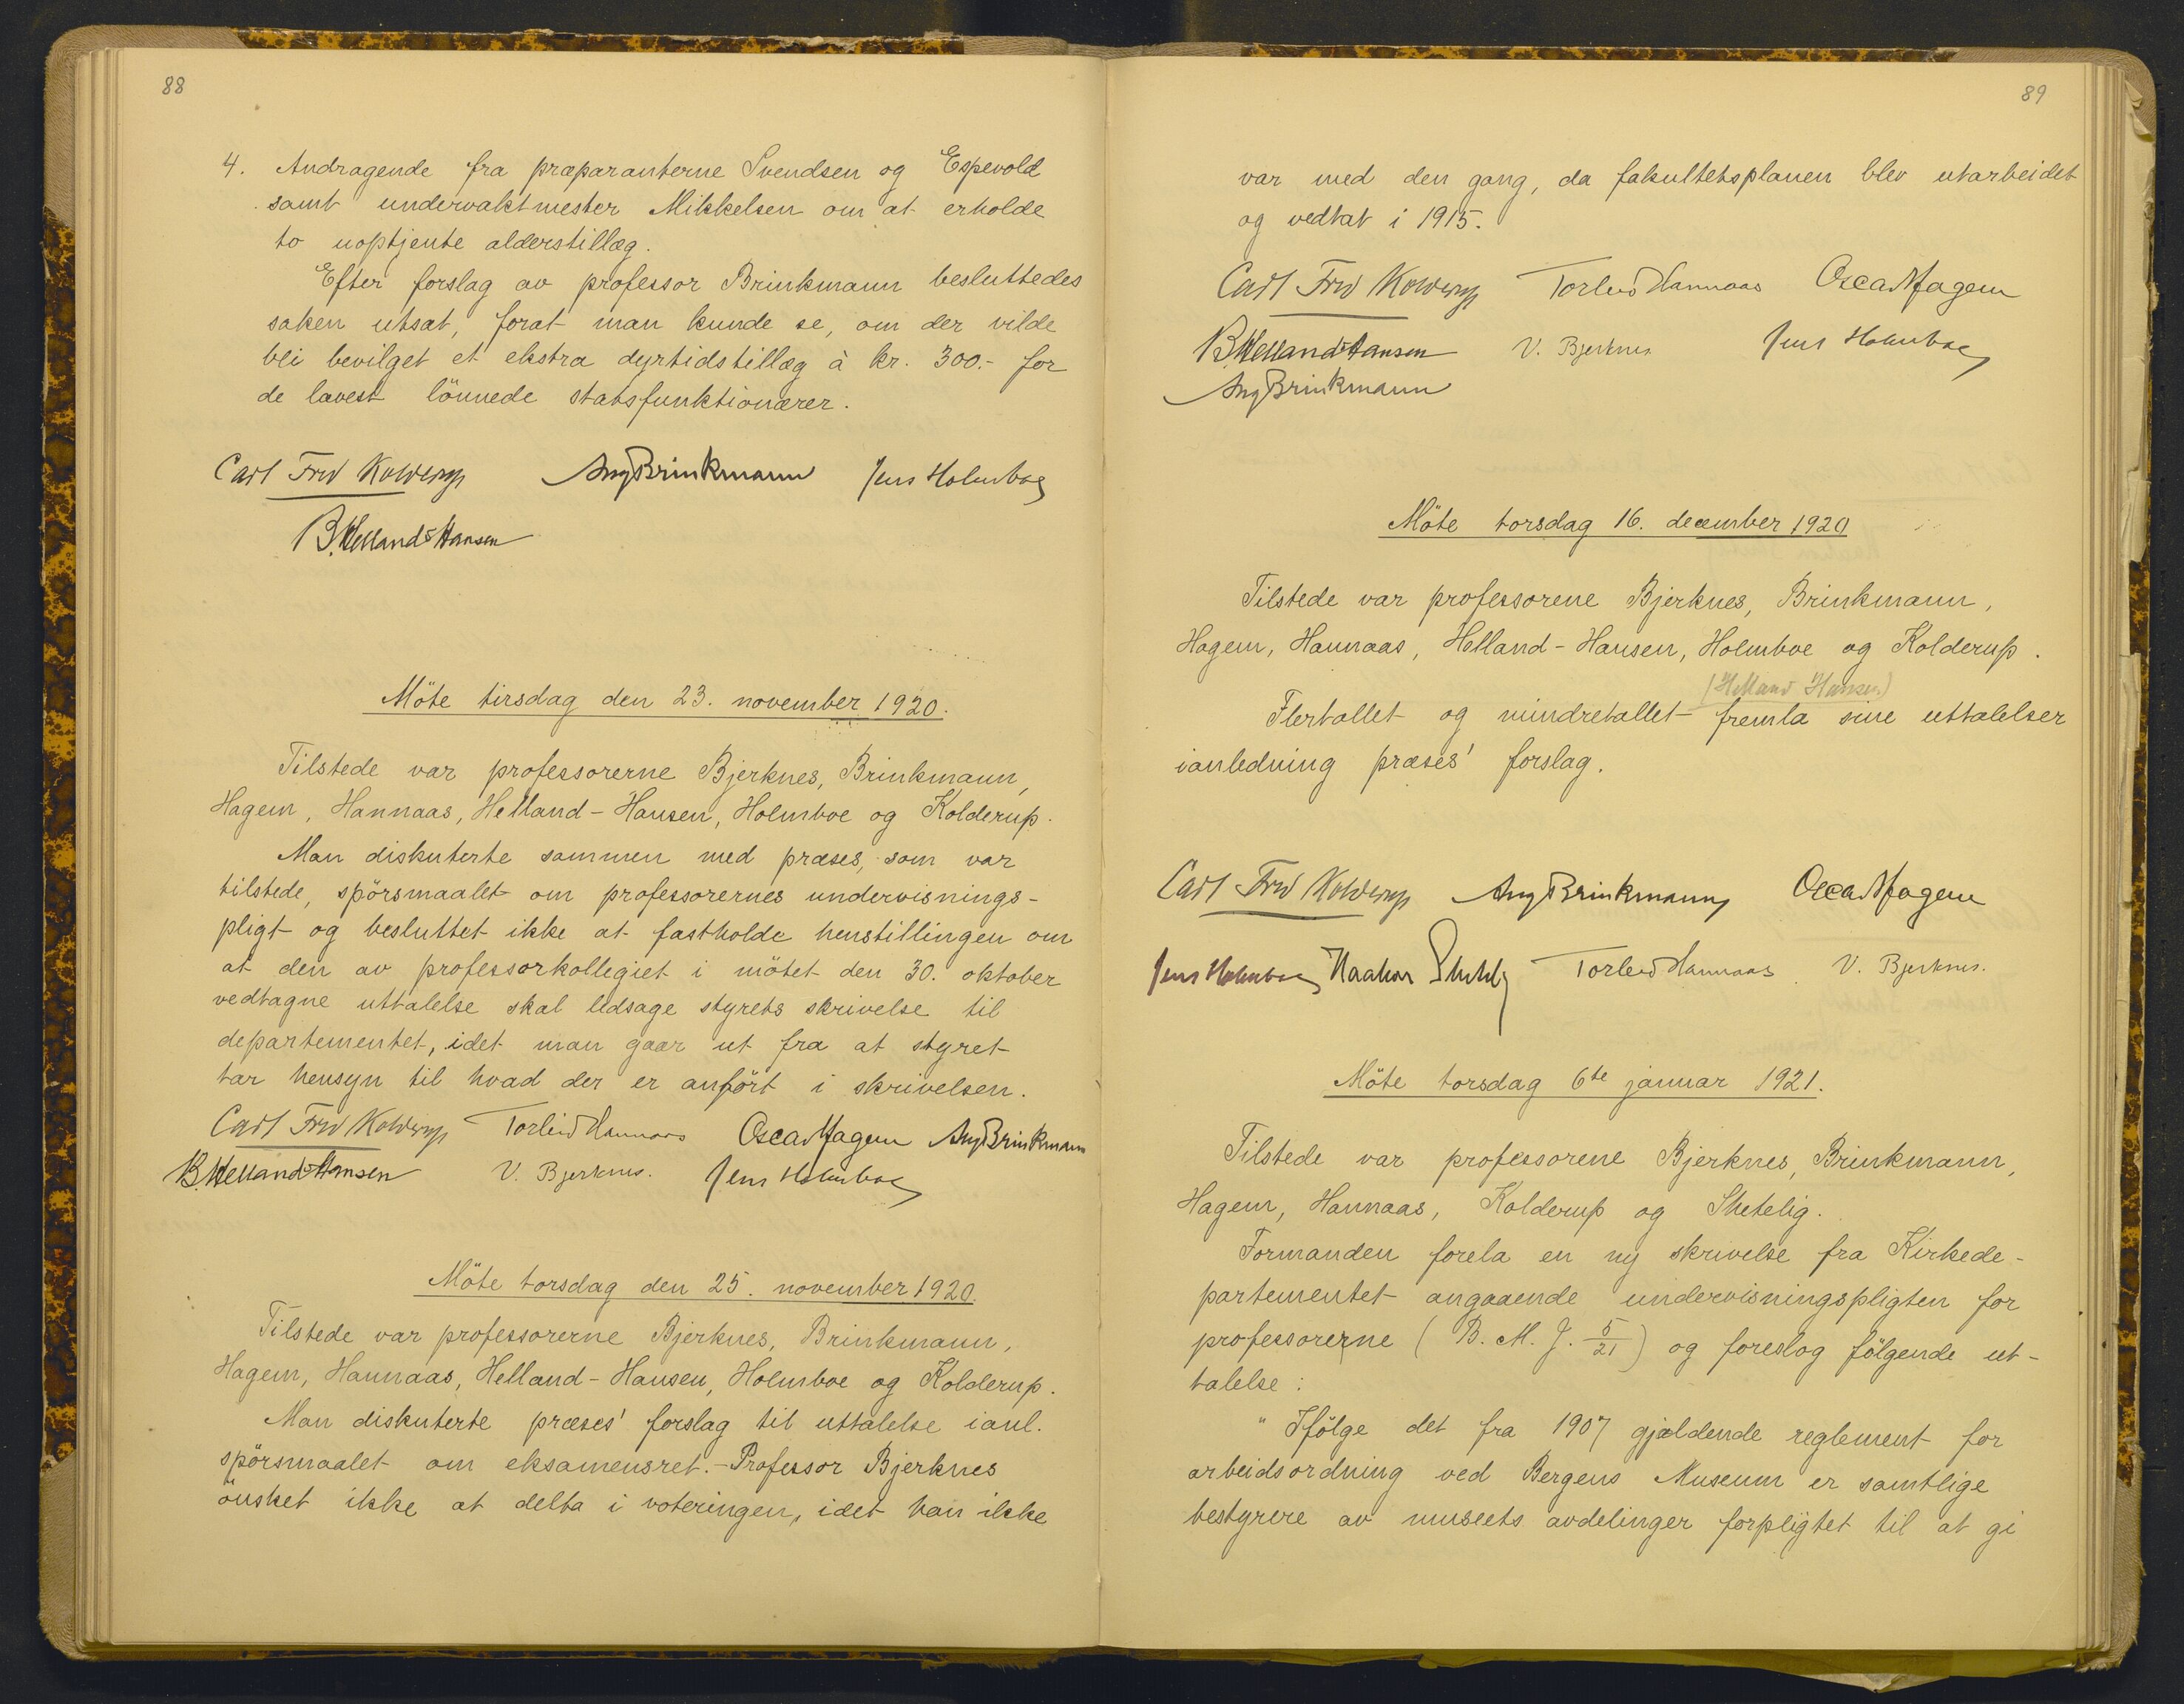 88
4. Andragende fra præparanterne Svendsen og Espevold
samt undervaktmester Mikkelsen om at erholde
to uoptjente alderstillæg.
Efter forslag av professor Brinkmann besluttedes
saken utsat, forat man kunde se, om der vilde
bli bevilget et ekstra dyrtidstillæg à kr. 300.- for
de lavest lönnede statsfunktionærer.
Carl Fred Kolderup Aug Brinkmann Jens Holmboe
B. Helland-Hansen
Möte tirsdag den 23. november 1920.
Tilstede var professorerne Bjerknes, Brinkmann,
Hagem, Hannaas, Helland-Hansen, Holmboe og Kolderup.
Man diskuterte sammen med præses, som var
tilstede, spörsmaalet om professorernes undervisnings-
pligt og besluttet ikke at fastholde henstillingen om
at den av professorkollegiet i mötet den 30. oktober
vedtagne uttalelse skal ledsage styrets skrivelse til
departementet, idet man gaar ut fra at styret
tar hensyn til hvad der er anfört i skrivelsen.
Carl Fred Kolderup Torleiv Hannaas Oscar Hagem Aug Brinkmann
B. Helland-Hansen V. Bjerknes. Jens Holmboe
Möte torsdag den 25. november 1920.
Tilstede var professorerne Bjerknes, Brinkmann,
Hagem, Hannaas, Helland-Hansen, Holmboe og Kolderup.
Man diskuterte præses' forslag til uttalelse ianl.
spörsmaalet om eksamensret. - Professor Bjerknes
önsket ikke at delta i voteringen, idet han ikke
89
var med den gang, da fakultetsplanen blev utarbeidet
og vedtat i 1915.
Carl Fred Kolderup Torleiv Hannaas Oscar Hagem
B. Helland-Hansen V. Bjerknes Jens Holmboe
Aug Brinkmann
Möte torsdag 16. december 1920
Tilstede var professorene Bjerknes, Brinkmann,
Hagem, Hannaas, Helland-Hansen, Holmboe og Kolderup.
(Helland Hansen)
Flertallet og mindretallet fremla sine uttalelser
ianledning præses' forslag.
Carl Fred Kolderup Aug Brinkmann Oscar Hagem
Jens Holmboe Haakon Shetelig Torleiv Hannaas V. Bjerknes.
Möte torsdag 6te januar 1921.
Tilstede var professorene Bjerknes, Brinkmann,
Hagem, Hannaas, Kolderup og Shetelig.
Formanden forela en ny skrivelse fra Kirkede-
partementet angaaende undervisningspligten for
professorerne (B. M. J. 5/21) og foreslog fölgende ut-
talelse:
"Ifölge det fra 1907 gjældende reglement for
arbeidsordning ved Bergens Museum er samtlige
bestyrere av museets avdelinger forpligtet til at gi